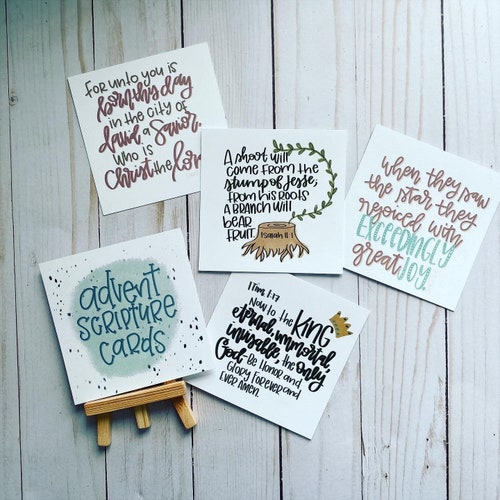 For unto you is
born this day
in the city of
david a Savior,
who is
Christ the lord
A shoot will
come from the
stump of Jesse;
from his roots
a branch will
bear
fruit.
Isaiah 11:1
when they saw
the star they
rejoiced with
exceedingly
great joy.
advent
scripture
cards
1 Tim. 1:17
Now to the KING
eternal, immortal,
invisible, the only
God be honor and
glory forever and
ever amen.